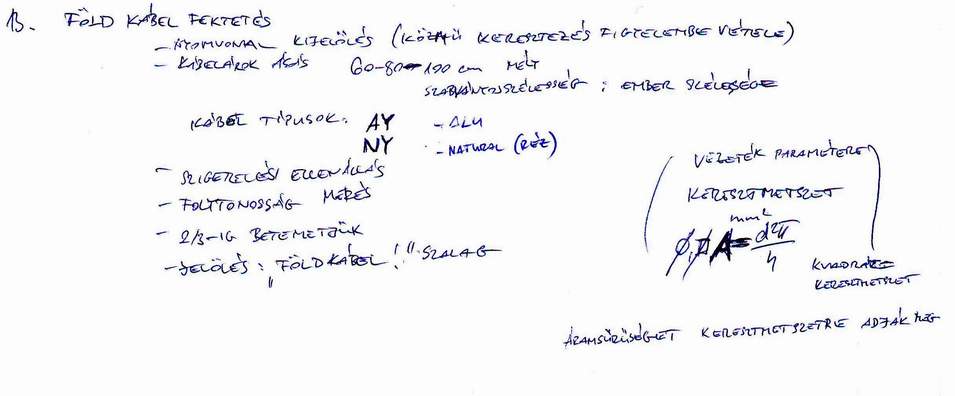 13. FÖLD KÁBEL FEKTETÉS
- NYOMVONAL KIJELÖLÉS (KÖZMŰ KERESZTEZÉS FIGYELEMBE VÉTELE)
- KÁBELÁROK ÁSÁS 60-80-100 cm MÉLY
SZABVÁNYOS SZÉLESSÉG: EMBER SZÉLESSÉGE
KÁBEL TÍPUSOK: AY - ALU
NY - NATURAL (RÉZ)
- SZIGETELÉSI ELLENÁLLÁS
- FOLYTONOSSÁG MÉRÉS
- 2/3-IG BETEMETJÜK
- JELÖLÉS: "FÖLDKÁBEL!" SZALAG
VEZETÉK PARAMÉTEREI
KERESZTMETSZET
mm²
A = d²π/4
KVADRÁT
KERESZTMETSZET
ÁRAMSŰRŰSÉGET KERESZTMETSZETRE ADJÁK MEG